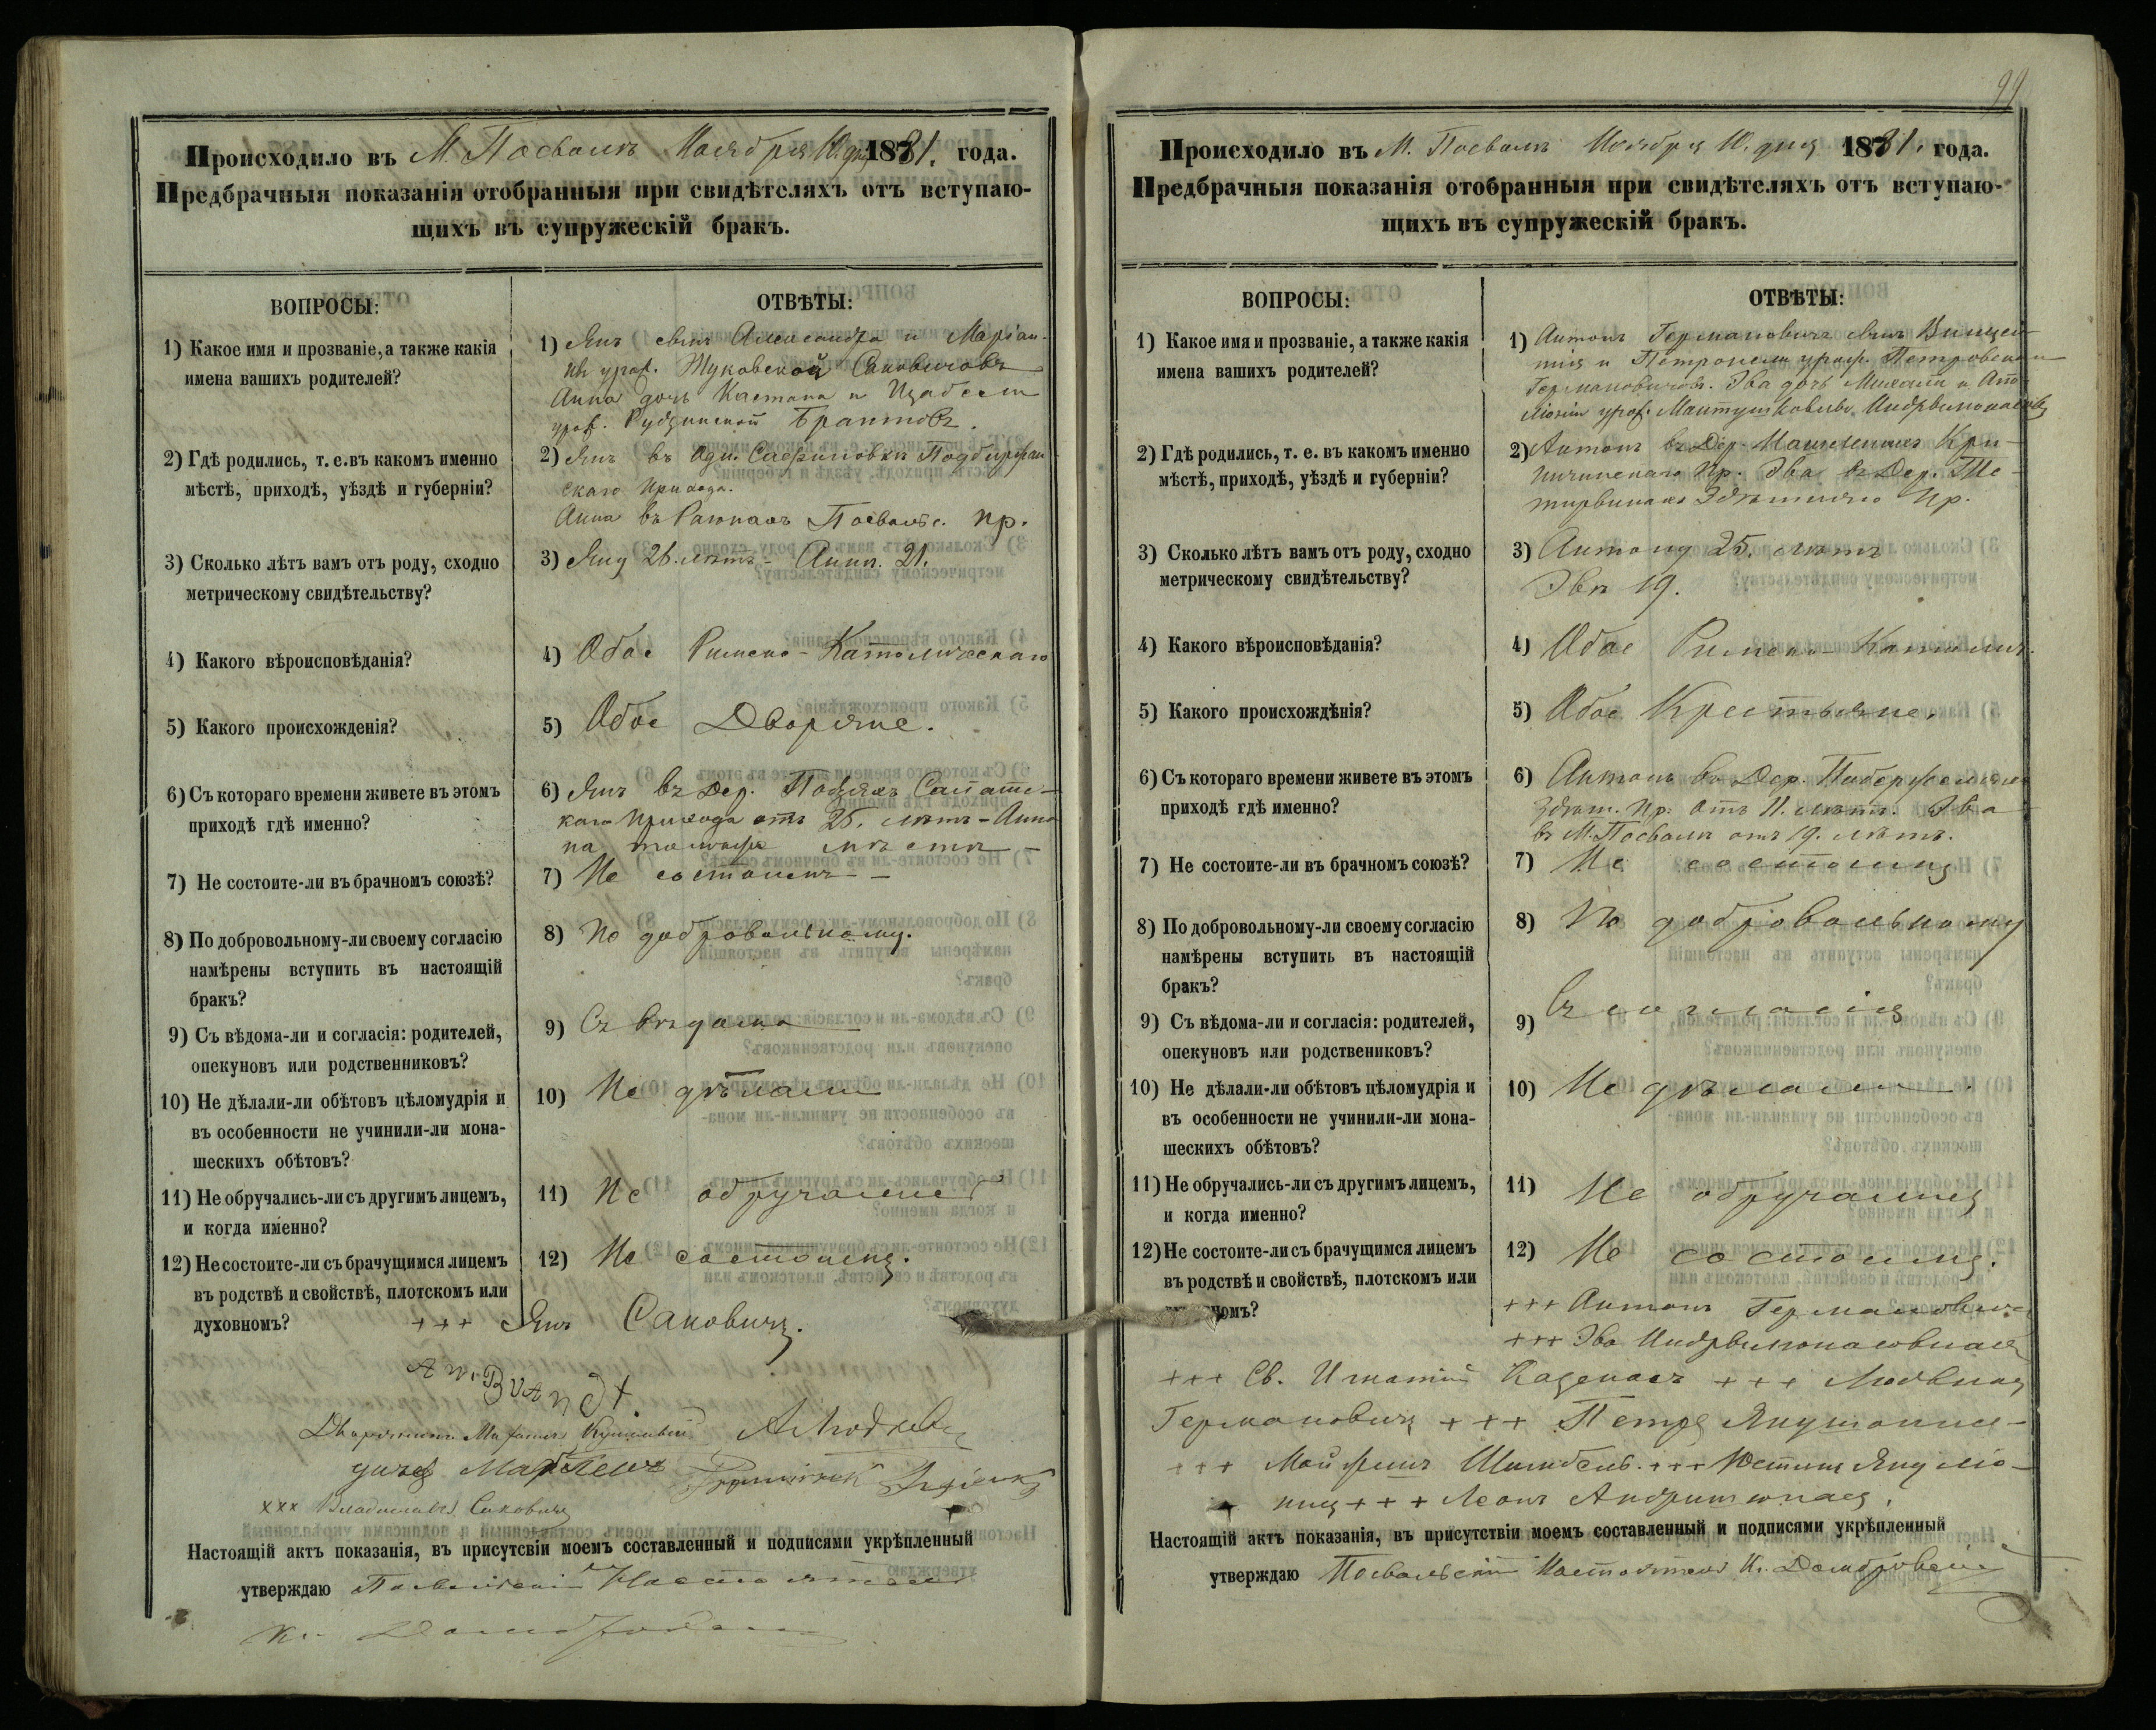 Происходило въ М. Посволѣ Ноября 10. дня 1881. года.
Предбрачныя показанія отобранныя при свидѣтеляхъ отъ вступаю-
щихъ въ супружескій бракъ.
ВОПРОСЫ:
ОТВѢТЫ:
1) Какое имя и прозваніе, а также какія
имена вашихъ родителей?
1) Янъ сынъ Александра и Маріан-
ны урож. Жуковской Саковичовъ
Анна дочь Кастана и Изабели
урож. Рудзинской Брантовъ.
2) Гдѣ родились, т. е. въ какомъ именно
мѣстѣ, приходѣ, уѣздѣ и губерніи?
2) Янъ въ
скаго прихода.
Анна въ Посвольс. пр.
3) Сколько лѣтъ вамъ отъ роду, сходно
метрическому свидѣтельству?
3) Яну 26. лѣтъ - Аннѣ. 21.
4) Какого вѣроисповѣданія?
4) Обое Римско-Католическаго
5) Какого происхожденія?
5) Обое Дворяне.
6) Съ котораго времени живете въ этомъ
приходѣ гдѣ именно?
6) Янъ въ Дер.
каго прихода отъ 25. лѣтъ - Анна
на мѣстѣ -
7) Не состоите-ли въ брачномъ союзѣ?
7) Не состоимъ -
8) По добровольному-ли своему согласію
намѣрены вступить въ настоящій
бракъ?
8) По добровольному.
9) Съ вѣдома-ли и согласія: родителей,
опекуновъ или родственниковъ?
9) Съ вѣдома
10) Не дѣлали-ли обѣтовъ цѣломудрія и
въ особенности не учинили-ли мона-
шескихъ обѣтовъ?
10) Не дѣлали
11) Не обручались-ли съ другимъ лицемъ,
и когда именно?
11) Не обручались
12) Не состоите-ли съ брачущимся лицемъ
въ родствѣ и свойствѣ, плотскомъ или
духовномъ?
12) Не состоимъ.
+++ Янъ Саковичъ.
An. Brandt.
Дворянинъ
xxx Владиславъ Саковичъ
Настоящій актъ показанія, въ присутсвіи моемъ составленный и подписями укрѣпленный
утверждаю Посвольскій Настоятель
К. Домбровскій
99
Происходило въ М. Посволѣ Ноября 10. дня 1881. года.
Предбрачныя показанія отобранныя при свидѣтеляхъ отъ вступаю-
щихъ въ супружескій бракъ.
ВОПРОСЫ:
ОТВѢТЫ:
1) Какое имя и прозваніе, а также какія
имена вашихъ родителей?
1) Антонъ Германовичъ сынъ Винцен-
тія и Петронели урож. Петровской
Германовичовъ. Эва дочь Михаила и Апо-
лоніи урож.
2) Гдѣ родились, т. е. въ какомъ именно
мѣстѣ, приходѣ, уѣздѣ и губерніи?
2) Антонъ въ Дер. Кри-
нчинскаго пр. Эва въ Дер. Те-
тирвинахъ Здѣшняго пр.
3) Сколько лѣтъ вамъ отъ роду, сходно
метрическому свидѣтельству?
3) Антону 25. лѣтъ
Эвѣ 19.
4) Какого вѣроисповѣданія?
4) Обое Римско-Католич.
5) Какого происхождѣнія?
5) Обое Крестьяне.
6) Съ котораго времени живете въ этомъ
приходѣ гдѣ именно?
6) Антонъ въ Дер.
Здѣш. пр. отъ 11. лѣтъ. Эва
въ М. Посволѣ отъ 19. лѣтъ.
7) Не состоите-ли въ брачномъ союзѣ?
7) Не состоимъ
8) По добровольному-ли своему согласію
намѣрены вступить въ настоящій
бракъ?
8) По добровольному
9) Съ вѣдома-ли и согласія: родителей,
опекуновъ или родствениковъ?
9) Съ согласія
10) Не дѣлали-ли обѣтовъ цѣломудрія и
въ особенности не учинили-ли мона-
шескихъ обѣтовъ?
10) Не дѣлали
11) Не обручались-ли съ другимъ лицемъ,
и когда именно?
11) Не обручались
12) Не состоите-ли съ брачущимся лицемъ
въ родствѣ и свойствѣ, плотскомъ или
12) Не состоимъ.
+++ Антонъ Германовичъ
+++ Эва
+++ Св. Игнатій +++ Людвикъ
Германовичъ +++ Петръ
+++ +++ Юстинъ
+++ Леонъ
Настоящій актъ показанія, въ присутствіи моемъ составленный и подписями укрѣпленный
утверждаю Посвольскій Настоятель К. Домбровскій